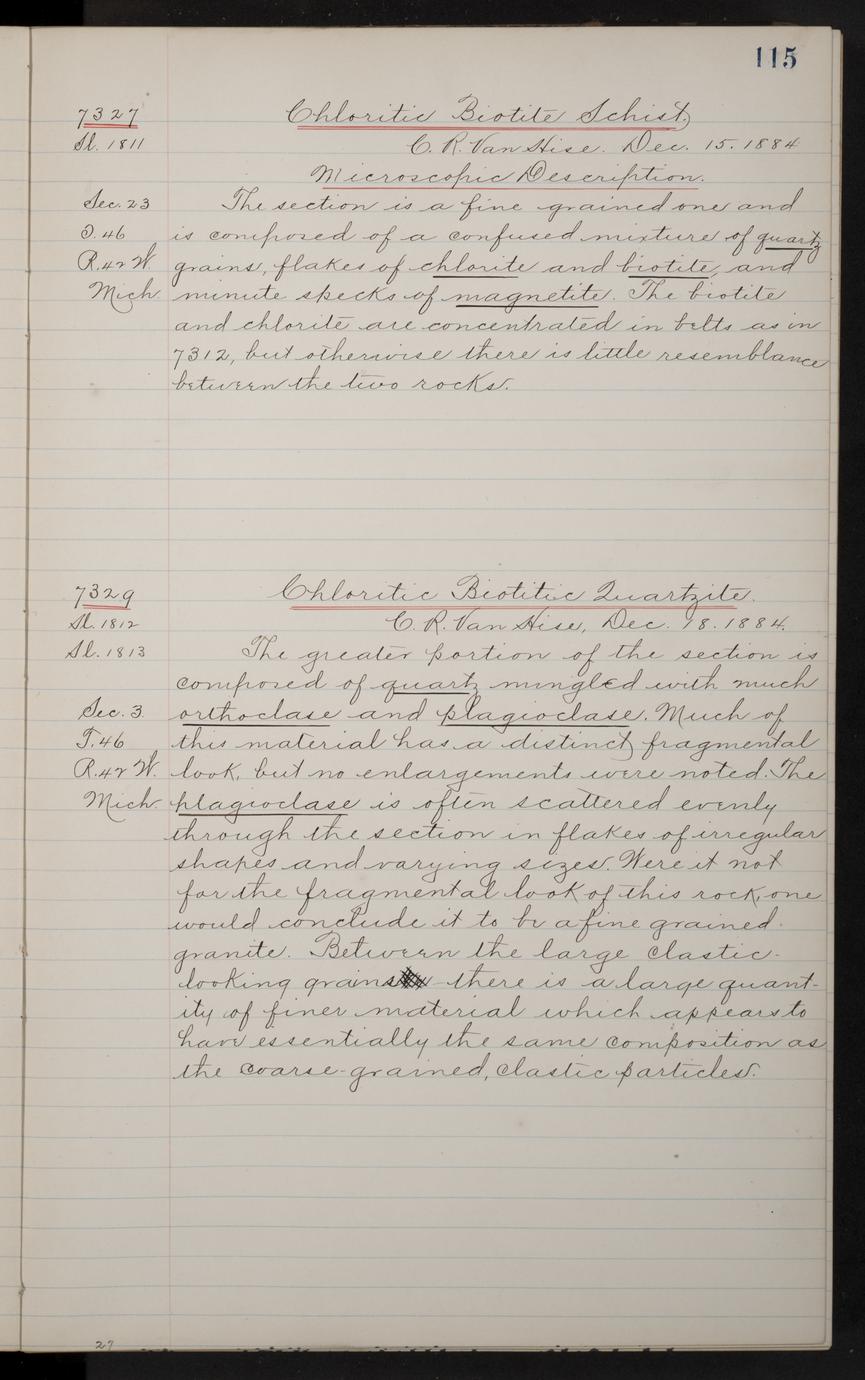 115
7327 Chloritic Biotite Schist
Sl. 1811 C. R. Van Hise. Dec. 15. 1884
Microscopic Description.
Sec. 23 The section is a fine grained one and
T. 46 is composed of a confused mixture of quartz
R. 42 W. grains, flakes of chlorite and biotite, and
Mich. minute specks of magnetite. The biotite
and chlorite are concentrated in belts as in
7312, but otherwise there is little resemblance
between the two rocks.
7329 Chloritic Biotitic Quartzite.
Sl. 1812 C. R. Van Hise, Dec. 18. 1884.
Sl. 1813 The greater portion of the section is
composed of quartz mingled with much
Sec. 3. orthoclase and plagioclase. Much of
T. 46 this material has a distinct fragmental
R. 42 W. look, but no enlargements were noted. The
Mich. plagioclase is often scattered evenly
through the section in flakes of irregular
shapes and varying sizes. Were it not
for the fragmental look of this rock, one
would conclude it to be a fine grained
granite. Between the large clastic-
looking grains there is a large quant-
ity of finer material which appears to
have essentially the same composition as
the coarse-grained, clastic particles.
27